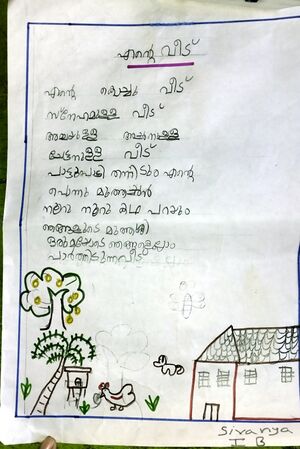 എന്റെ വീട്
എന്റെ കൊച്ചു വീട്
സ്നേഹമുള്ള വീട്
അമ്മയുള്ള അച്ഛനുള്ള
ചേട്ടനുള്ള വീട്
പാട്ടുപാടി തന്നിടും എന്റെ
പൊന്നു മുത്തച്ഛൻ
നൂറു നൂറു കഥ പറയും
ഞങ്ങളുടെ മുത്തശ്ശി
ഒരുമയോടെ ഞങ്ങളെല്ലാം
പാർത്തിടുന്നവീട്
Sivanya
I B